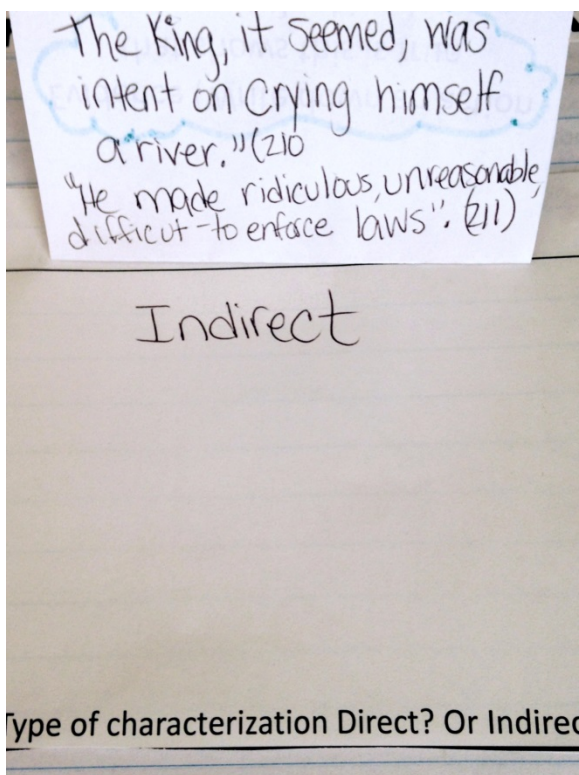 The King, it seemed, was
intent on crying himself
a river." (210
"He made ridiculous, unreasonable,
difficut-to enforce laws". (211)
Indirect
Type of characterization Direct? Or Indirec